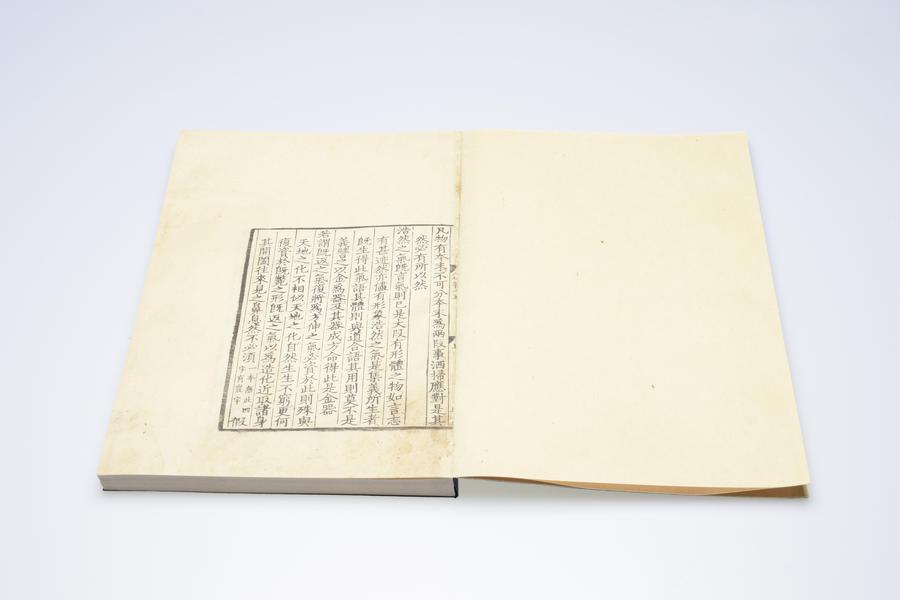 凡物有夲末不可分夲末爲兩段事洒掃應對是其
然必有所以然
浩然之氣既言氣則已是大段有形體之物如言志
有甚迹然亦儘有形象浩然之氣是集義所生者
既生得此氣語其體則與道合語其用則莫不是
義譬之以金爲器及其器成方命得此是金器
若謂既返之氣復將爲方伸之氣必資於此則殊與
天地之化不相似天地之化自然生生不窮更何
復資於既斃之形既返之氣以爲造化近取諸身
其開闔往來見之鼻息然不必須一本無此四字有豈字假